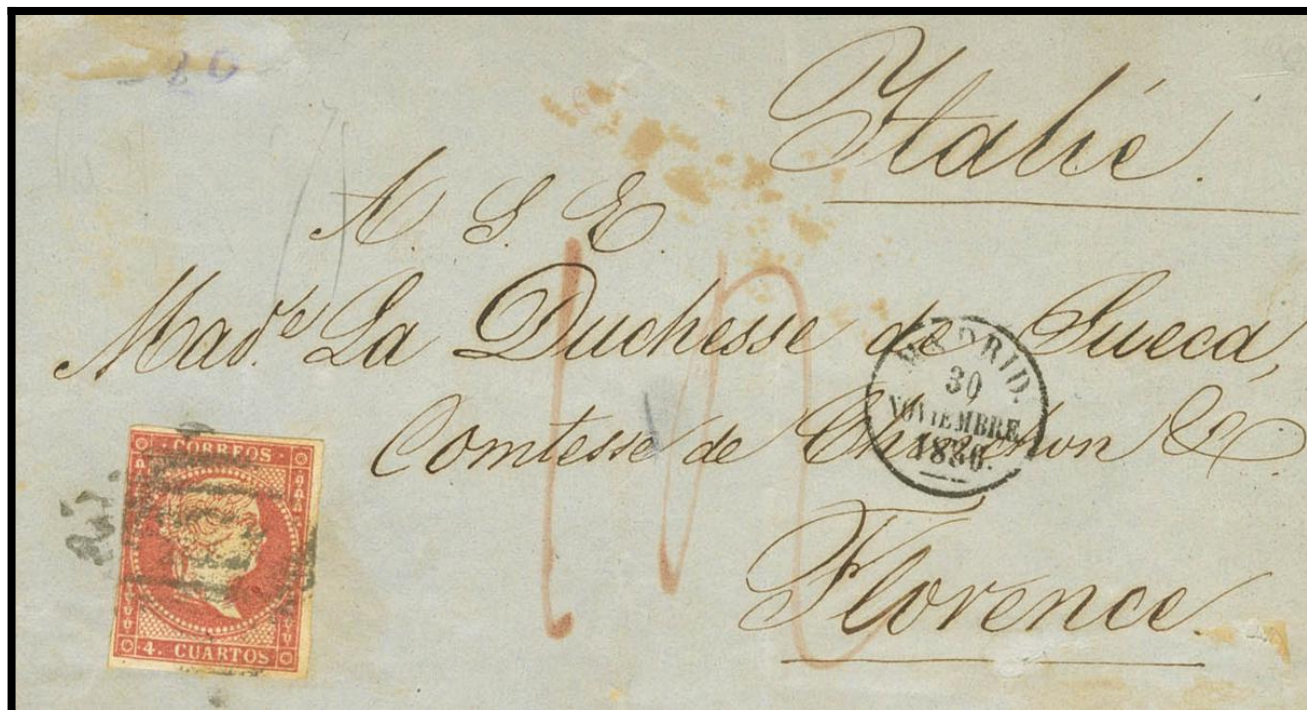 Italie.
A. S. E.
Mad.e La Duchesse de Sueca,
Comtesse de Chinchon &c.
Florence.
MADRID.
30
NOVIEMBRE
CORREOS
4. CUARTOS